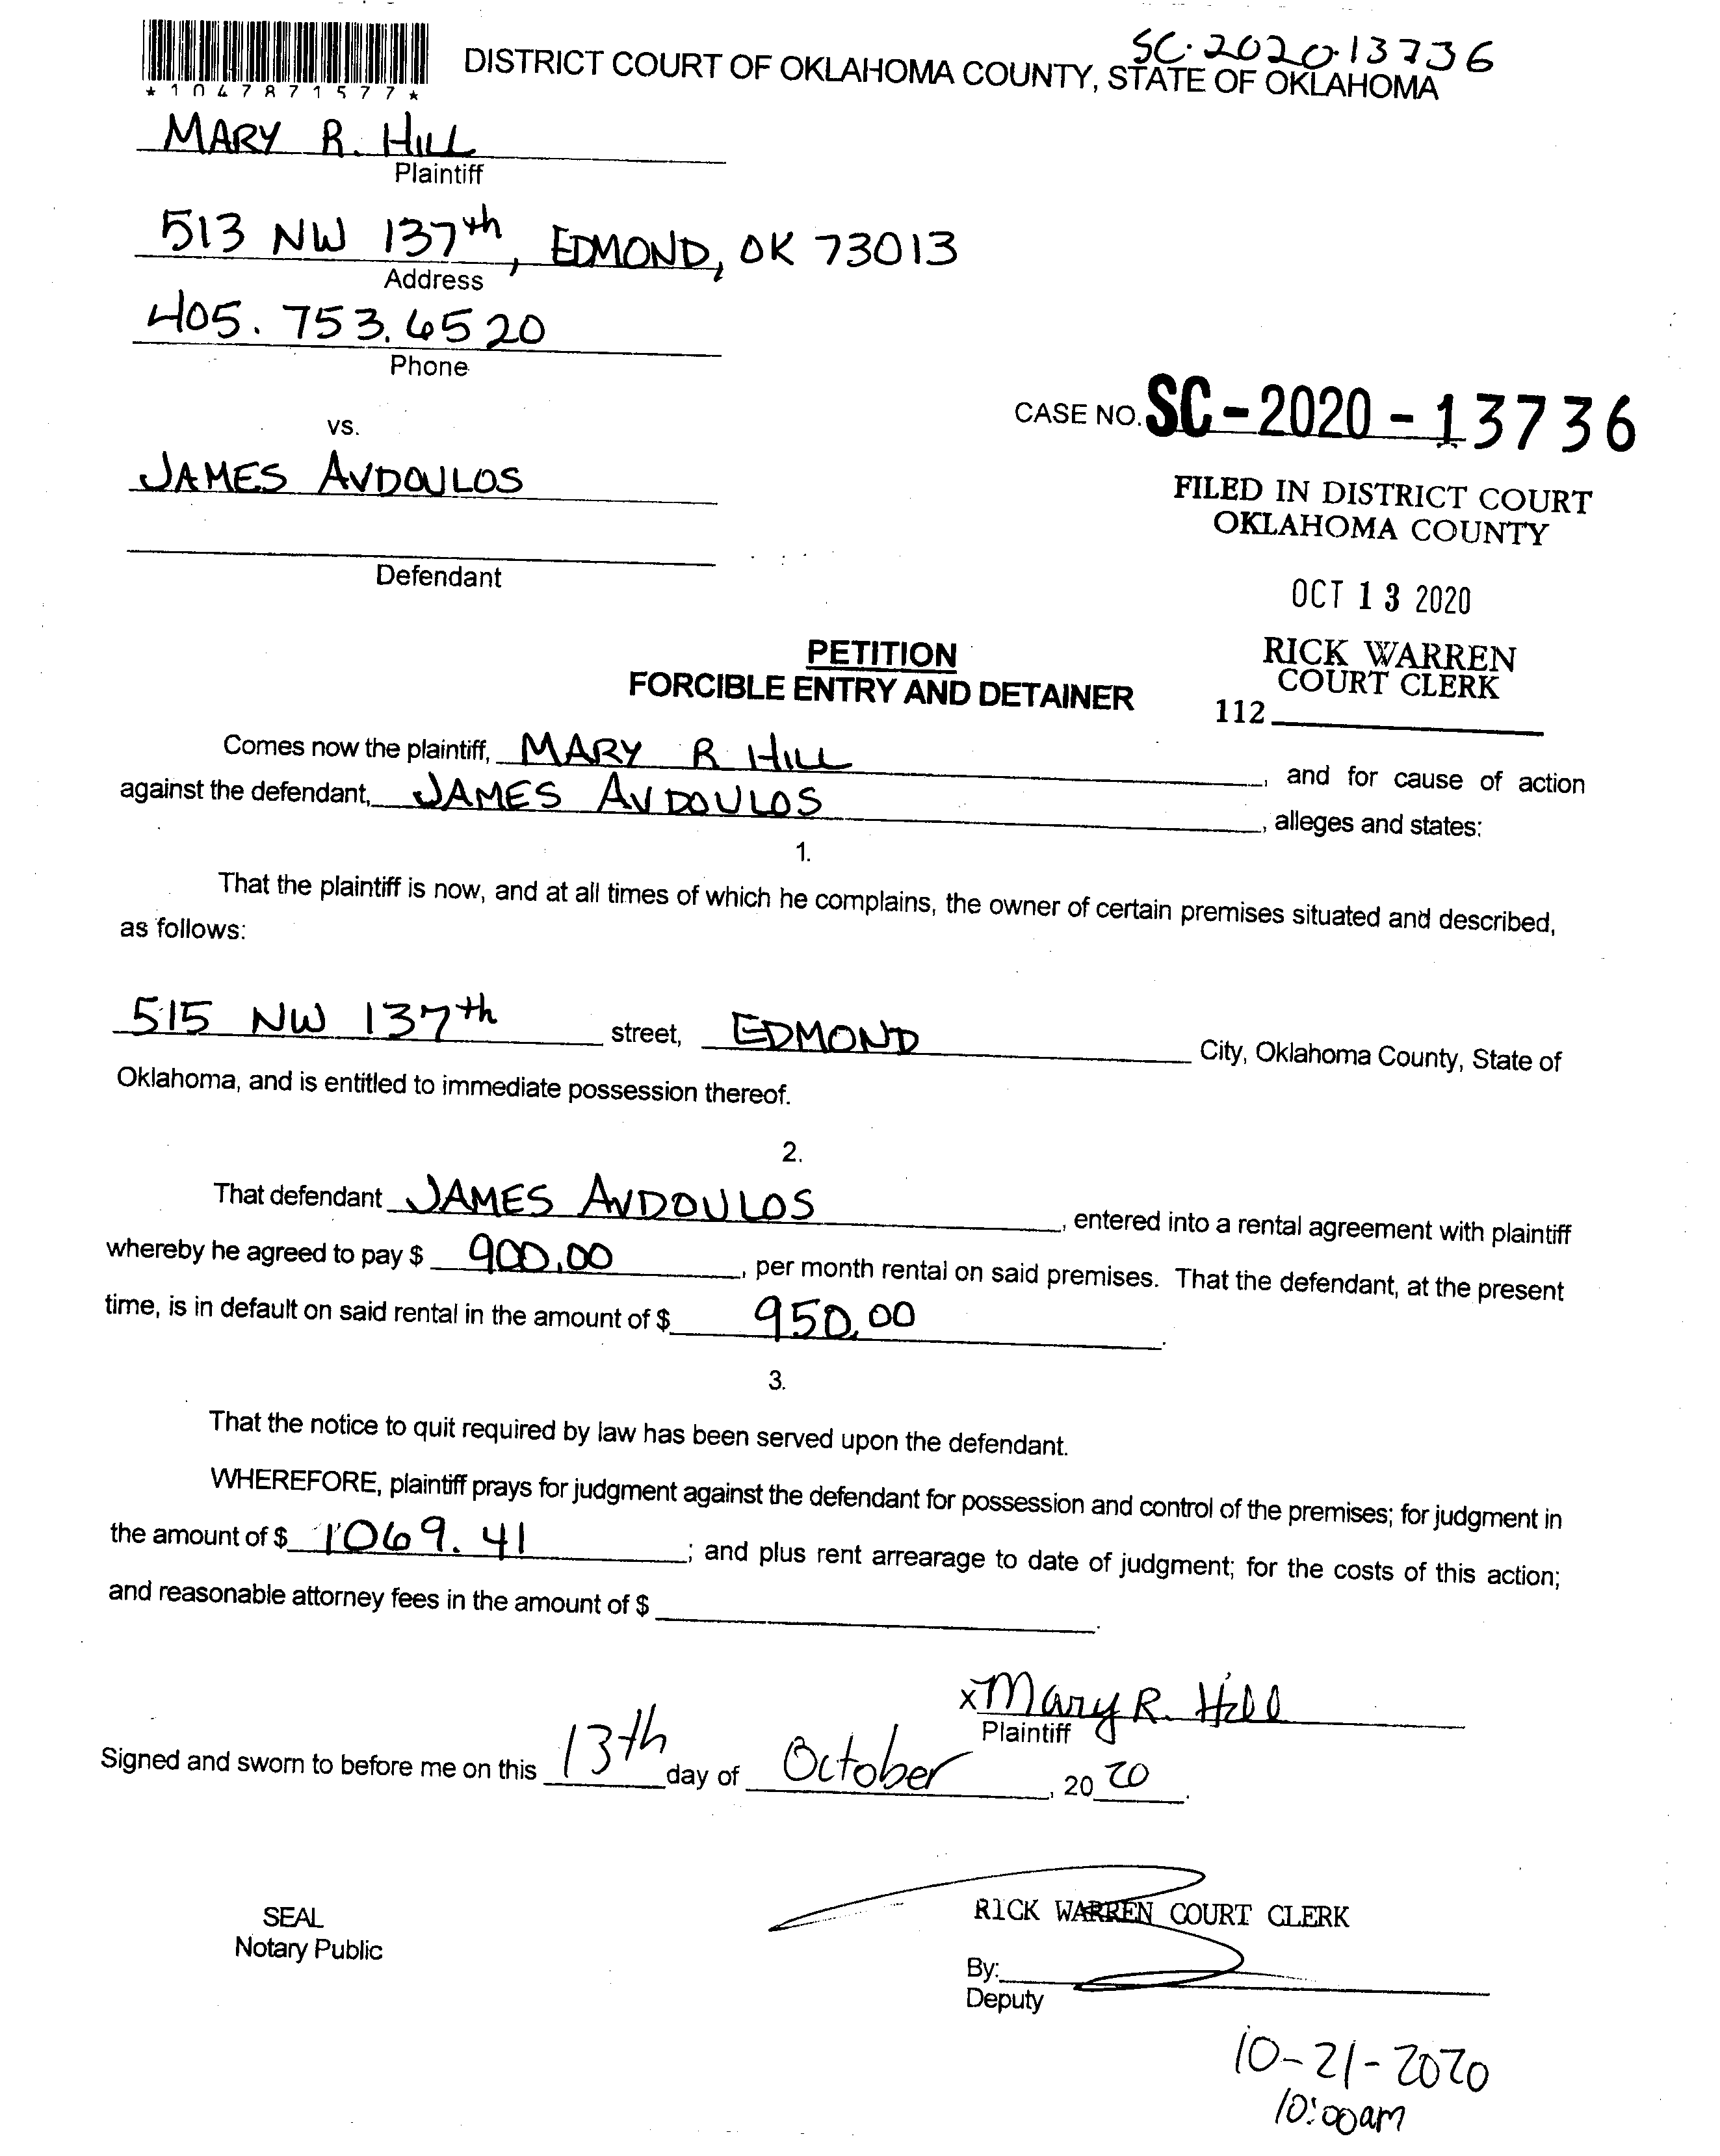 SC-2020-13736
DISTRICT COURT OF OKLAHOMA COUNTY, STATE OF OKLAHOMA
*1047871577*
MARY R. HILL
Plaintiff
513 NW 137th, EDMOND, OK 73013
Address
405.753.6520
Phone
CASE NO. SC-2020-13736
vs.
JAMES AVDOULOS
FILED IN DISTRICT COURT
OKLAHOMA COUNTY
Defendant
OCT 13 2020
PETITION
FORCIBLE ENTRY AND DETAINER
RICK WARREN
COURT CLERK
112
Comes now the plaintiff, MARY R HILL, and for cause of action
against the defendant, JAMES AVDOULOS, alleges and states:
1.
That the plaintiff is now, and at all times of which he complains, the owner of certain premises situated and described,
as follows:
515 NW 137th street, EDMOND City, Oklahoma County, State of
Oklahoma, and is entitled to immediate possession thereof.
2.
That defendant JAMES AVDOULOS, entered into a rental agreement with plaintiff
whereby he agreed to pay $ 900.00, per month rental on said premises. That the defendant, at the present
time, is in default on said rental in the amount of $ 950.00.
3.
That the notice to quit required by law has been served upon the defendant.
WHEREFORE, plaintiff prays for judgment against the defendant for possession and control of the premises; for judgment in
the amount of $ 1069.41; and plus rent arrearage to date of judgment; for the costs of this action;
and reasonable attorney fees in the amount of $
x Mary R. Hill
Plaintiff
Signed and sworn to before me on this 13th day of October, 2020.
SEAL
Notary Public
RICK WARREN COURT CLERK
By:
Deputy
10-21-2020
10:00am